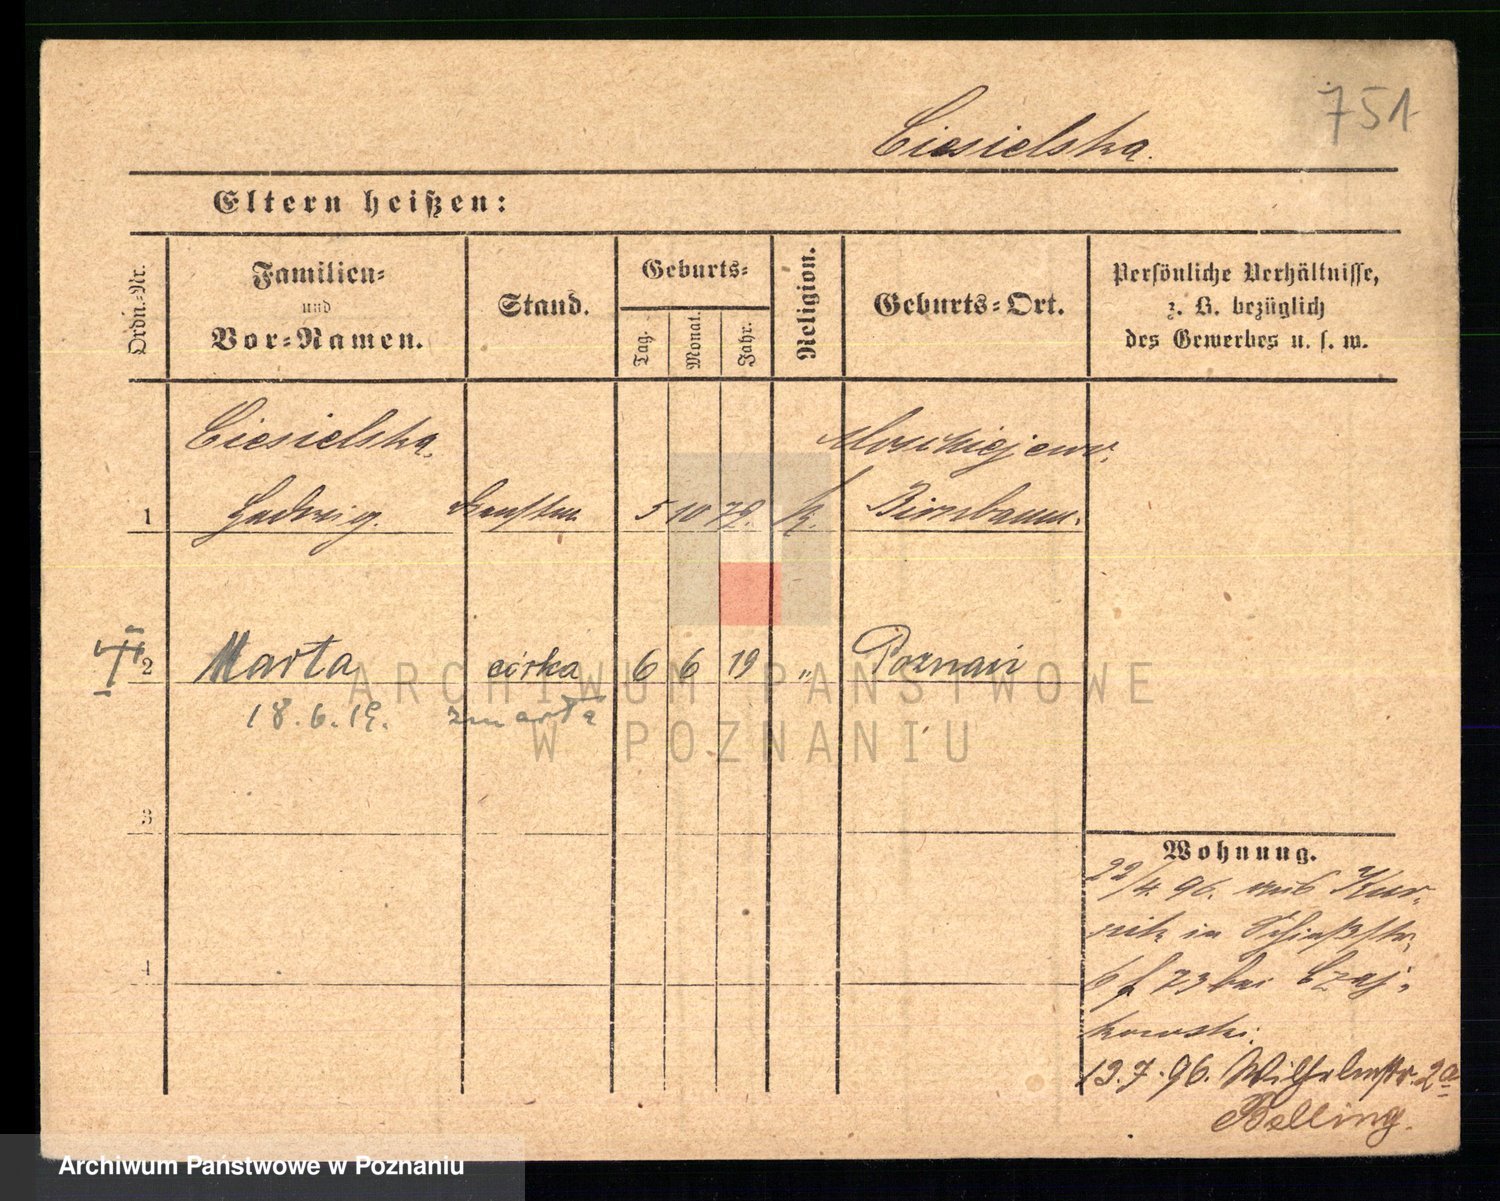 751
Ciesielska.
Eltern heißen:
Ordn.-Nr.
Familien-
und
Vor-Namen.
Stand.
Geburts-
Tag.
Monat.
Jahr.
Religion.
Geburts-Ort.
Persönliche Verhältnisse,
z. B. bezüglich
des Gewerbes u. s. w.
Ciesielska,
1 Hedwig. 5 10 79. k. Birnbaum.
2 Marta córka 6 6 19 " Poznań
18.6.19. zmarła
3
4
Wohnung.
22/4. 96. aus Kur-
nik in Schießstr.
6 f 73 bei Czaj-
kowski.
13.7.96. Wilhelmstr. 2a
Belling.
ARCHIWUM PAŃSTWOWE
W POZNANIU
Archiwum Państwowe w Poznaniu